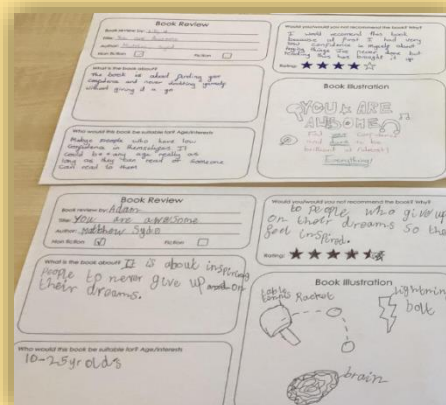 Book Review
Book review by:
Title: You are Awesome
Author: Matthew Syed
Non fiction
Fiction
What is the book about?
The book is about finding your
confidence and never doubting yourself
without giving it a go
Who would this book be suitable for? Age/Interests
people who have low
confidence in themselves. It
could be any age really as
long as they can read or someone
can read to them
Would you/would you not recommend this book? Why?
I would recommend this book
because at first I had very
low confidence in myself about
things I've never done but
reading this has brought it up
Rating:
Book Illustration
YOU ARE
AWESOME
Find your confidence
and dare to be
brilliant at (almost)
Everything!
Book Review
Book review by: Adam
Title: You are awesome
Author: Matthew Syed
Non fiction
Fiction
What is the book about? It is about inspiring
people to never give up on
their dreams.
Who would this book be suitable for? Age/Interests
10-25yr olds
Would you/would you not recommend this book? Why?
to people who give up
on their dreams so the
feel inspired.
Rating:
Book Illustration
table
tennis Racket
lightning
bolt
brain